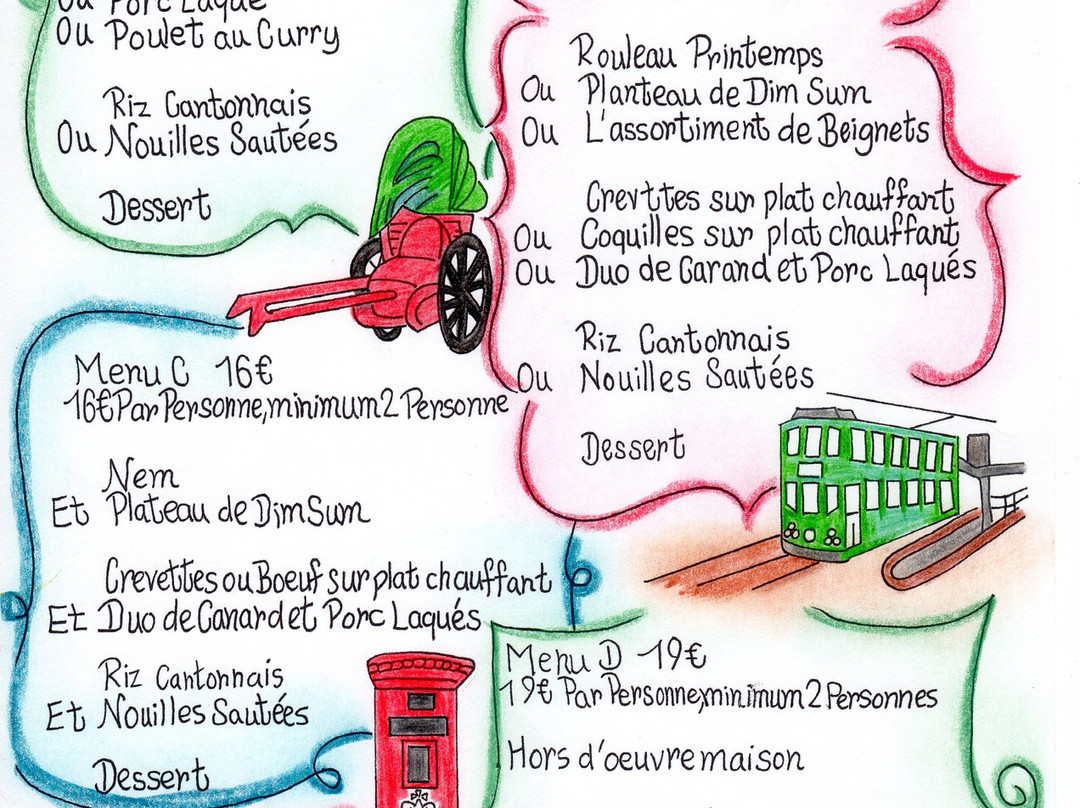 Ou Porc Laqué
Ou Poulet au Curry
Riz Cantonnais
Ou Nouilles Sautées
Dessert
Rouleau Printemps
Ou Planteau de Dim Sum
Ou L'assortiment de Beignets
Crevttes sur plat chauffant
Ou Coquilles sur plat chauffant
Ou Duo de Carand et Porc Laqués
Riz Cantonnais
Ou Nouilles Sautées
Dessert
Menu C 16€
16€ Par Personne, minimum 2 Personne
Nem
Et Plateau de Dim Sum
Crevettes ou Boeuf sur plat chauffant
Et Duo de Canard et Porc Laqués
Riz Cantonnais
Et Nouilles Sautées
Dessert
Menu D 19€
19€ Par Personne, minimum 2 Personnes
Hors d'oeuvre maison